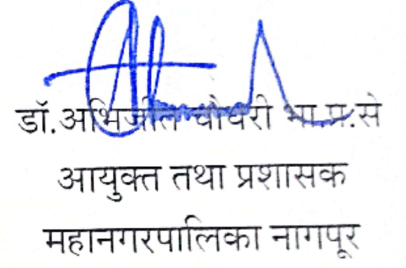 डॉ.अभिजीत चौधरी भा.प्र.से
आयुक्त तथा प्रशासक
महानगरपालिका नागपूर